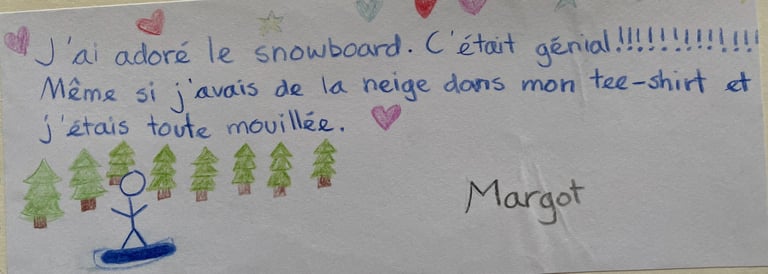 J'ai adoré le snowboard. C'était génial!!!!!!!!!!!!!
Même si j'avais de la neige dans mon tee-shirt et
j'étais toute mouillée.
Margot